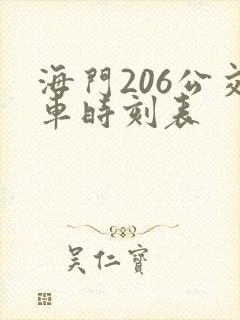 海門206公交
車時刻表
吴仁寶